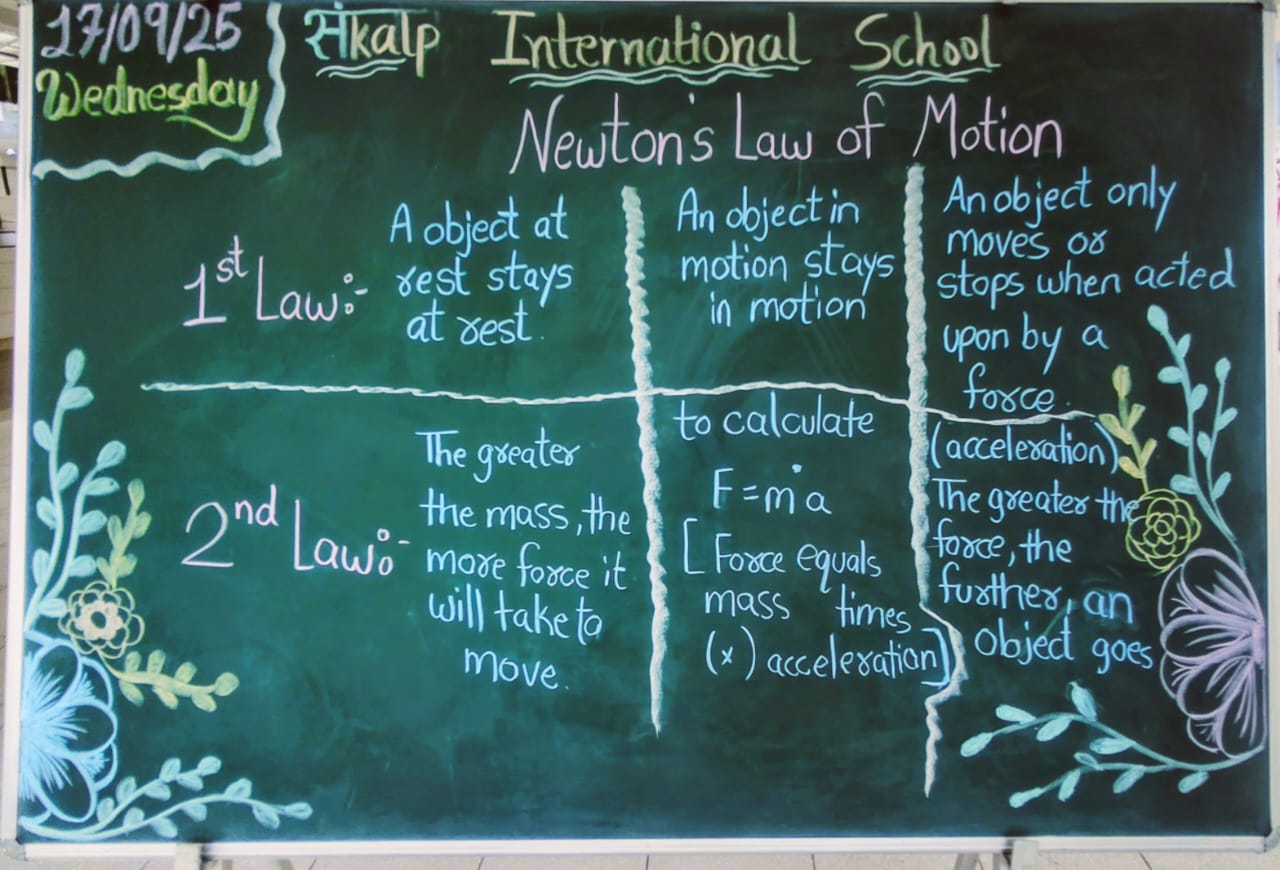 17/09/25
Wednesday
संkalp International School
Newton's Law of Motion
1st Law:-
A object at
rest stays
at rest.
An object in
motion stays
in motion
An object only
moves or
stops when acted
upon by a
force.
2nd Law:-
The greater
the mass, the
more force it
will take to
move.
to calculate
F = m·a
[Force equals
mass times
(x) acceleration]
(acceleration)
The greater the
force, the
further, an
object goes